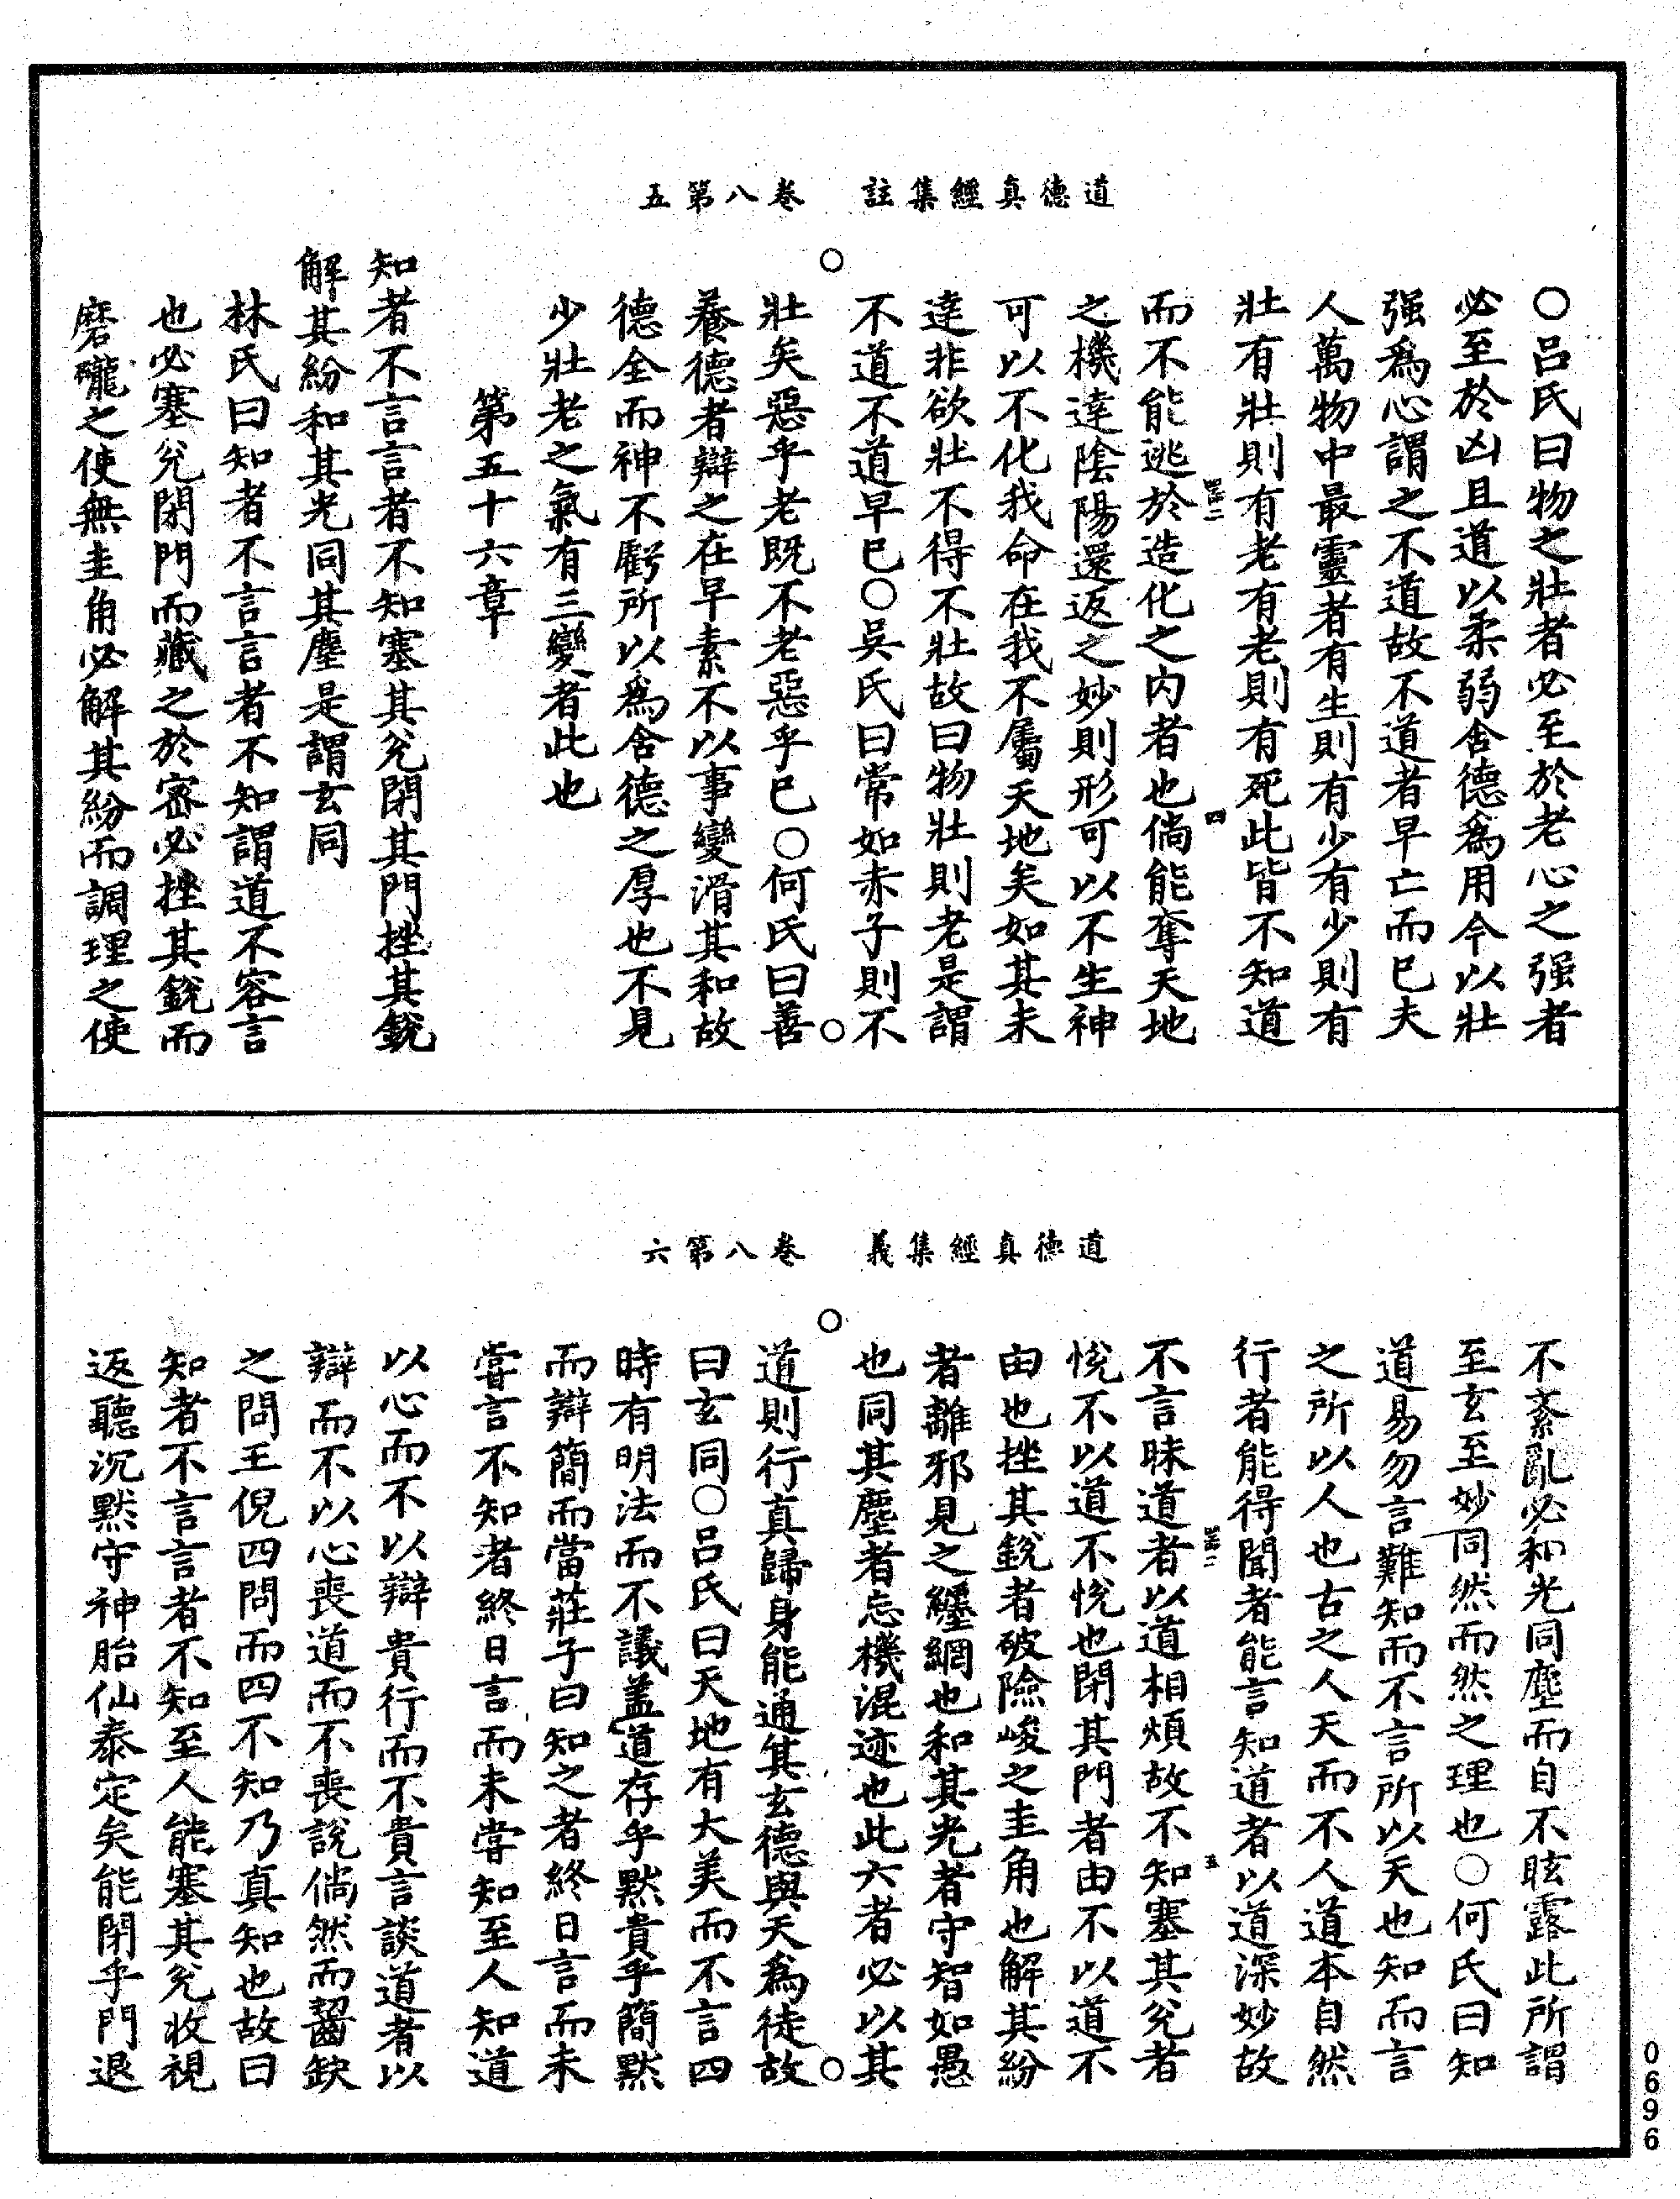 道德真經集註　卷八第五
○呂氏曰物之壯者必至於老心之强者
必至於凶且道以柔弱含德為用今以壯
强爲心謂之不道故不道者早亡而已夫
人萬物中最靈者有生則有少有少則有
壯有壯則有老有老則有死此皆不知道
而不能逃於造化之内者也倘能奪天地
之機達陰陽還返之妙則形可以不生神
可以不化我命在我不屬天地矣如其未
達非欲壯不得不壯故曰物壯則老是謂
不道不道早已○吳氏曰常如赤子則不
壯矣惡乎老既不老惡乎已○何氏曰善
養德者辯之在早素不以事變滑其和故
德全而神不虧所以爲含德之厚也不見
少壯老之氣有三變者此也
第五十六章
知者不言言者不知塞其兊閉其門挫其銳
解其紛和其光同其塵是謂玄同
林氏曰知者不言言者不知謂道不容言
也必塞兊閉門而藏之於密必挫其銳而
磨礲之使無圭角必解其紛而調理之使
道德真經集義　卷八第六
不紊亂必和光同塵而自不眩露此所謂
至玄至妙同然而然之理也○何氏曰知
道易勿言難知而不言所以天也知而言
之所以人也古之人天而不人道本自然
行者能得聞者能言知道者以道深妙故
不言昧道者以道相煩故不知塞其兊者
悅不以道不悅也閉其門者由不以道不
由也挫其銳者破險峻之圭角也解其紛
者離邪見之纏網也和其光者守智如愚
也同其塵者忘機混迹也此六者必以其
道則行真歸身能通其玄德與天爲徒故
曰玄同○呂氏曰天地有大美而不言四
時有明法而不議盖道存乎默貴乎簡默
而辯簡而當莊子曰知之者終日言而未
甞言不知者終日言而未甞知至人知道
以心而不以辯貴行而不貴言談道者以
辯而不以心喪道而不喪說倘然而齧缺
之問王倪四問而四不知乃真知也故曰
知者不言言者不知至人能塞其兊收視
返聽沉默守神胎仙泰定矣能閉乎門退
0696